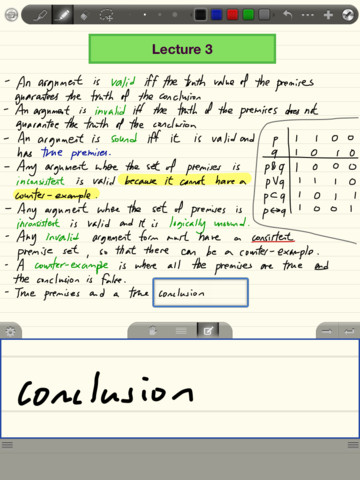 Lecture 3
- An argument is valid iff the truth value of the premises
guarantees the truth of the conclusion
- An argument is invalid iff the truth of the premises does not
guarantee the truth of the conclusion
- An argument is sound iff it is valid and
has true premises.
- Any argument where the set of premises is
inconsistent is valid because it cannot have a
counter-example.
- Any argument where the set of premises is
inconsistent is valid and it is logically unsound.
- Any invalid argument form must have a consistent
premise set, so that there can be a counter-example.
- A counter-example is where all the premises are true and
the conclusion is false.
- True premises and a true conclusion
p 1 1 0 0
q 1 0 1 0
p&q 1 0 0 0
p∨q 1 1 1 0
p⊂q 1 0 1 1
p↔q 1 0 0 1
conclusion